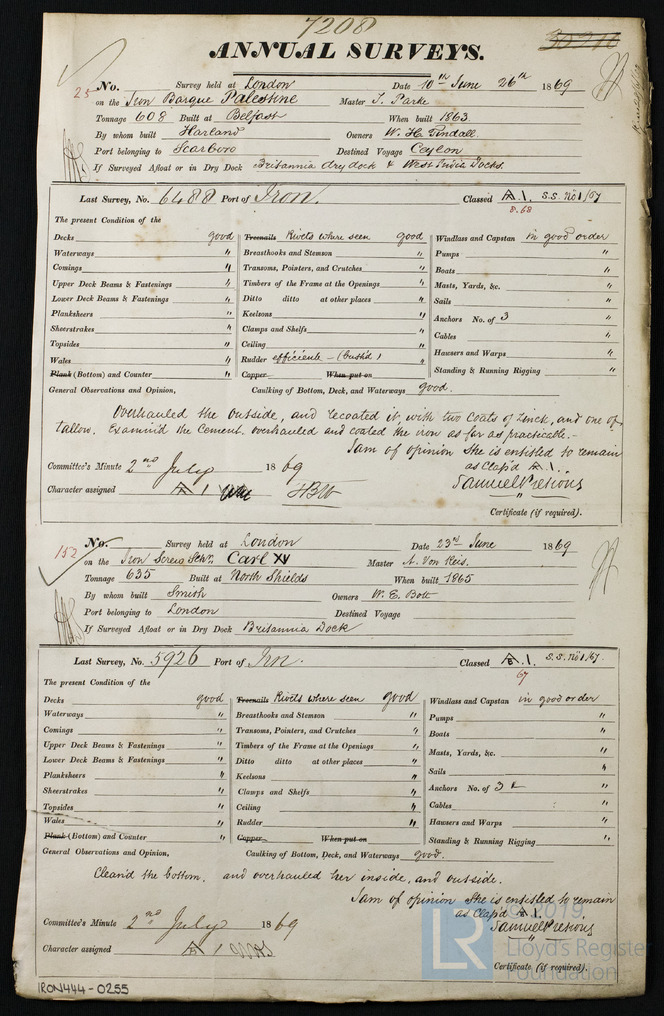 7208
30210
ANNUAL SURVEYS.
25 No. Survey held at London Date 10th June 26th 1869
on the Iron Barque Palestine Master T. Parke
Tonnage 608 Built at Belfast When built 1863
By whom built Harland Owners W. H. Tindall.
Port belonging to Scarboro Destined Voyage Ceylon
If Surveyed Afloat or in Dry Dock Britannia dry dock & West India Docks.
Last Survey, No. 6488 Port of Iron. Classed A.1. S.S. No 1/67
8.68
The present Condition of the
Decks good
Waterways "
Comings "
Upper Deck Beams & Fastenings "
Lower Deck Beams & Fastenings "
Planksheers "
Sheerstrakes "
Topsides "
Wales "
Plank (Bottom) and Counter "
Treenails Rivets where seen good
Breasthooks and Stemson "
Transoms, Pointers, and Crutches "
Timbers of the Frame at the Openings "
Ditto ditto at other places "
Keelsons "
Clamps and Shelfs "
Ceiling "
Rudder efficient - (Bush'd) "
Copper When put on
Windlass and Capstan in good order
Pumps "
Boats "
Masts, Yards, &c. "
Sails "
Anchors No. of 3 "
Cables "
Hausers and Warps "
Standing & Running Rigging "
General Observations and Opinion, Caulking of Bottom, Deck, and Waterways good.
Overhauled the outside, and recoated it, with two coats of zinck, and one of
tallow. Examin'd the Cement. overhauled and coated the iron as far as practicable. -
I am of opinion She is entitled to remain
as Class'd A 1.
Committee's Minute 2nd July 1869
Character assigned A 1
Samuel Pretious
Certificate (if required).
152 No. Survey held at London Date 23rd June 1869
on the Iron Screw Schr. Carl XV Master A. Von Reis.
Tonnage 635 Built at North Shields When built 1865
By whom built Smith Owners W. E. Bott
Port belonging to London Destined Voyage
If Surveyed Afloat or in Dry Dock Britannia Dock
Last Survey, No. 5926 Port of Irn. Classed A.1. S.S. No 1/67.
67
The present Condition of the
Decks good
Waterways "
Comings "
Upper Deck Beams & Fastenings "
Lower Deck Beams & Fastenings "
Planksheers "
Sheerstrakes "
Topsides "
Wales "
Plank (Bottom) and Counter "
Treenails Rivets where seen good
Breasthooks and Stemson "
Transoms, Pointers, and Crutches "
Timbers of the Frame at the Openings "
Ditto ditto at other places "
Keelsons "
Clamps and Shelfs "
Ceiling "
Rudder "
Copper When put on
Windlass and Capstan in good order
Pumps "
Boats "
Masts, Yards, &c. "
Sails "
Anchors No. of 3 "
Cables "
Hausers and Warps "
Standing & Running Rigging "
General Observations and Opinion, Caulking of Bottom, Deck, and Waterways good.
Clean'd the bottom. and overhauled her inside, and outside.
I am of opinion She is entitled to remain
as Class'd A 1.
Committee's Minute 2nd July 1869
Samuel Pretious
Character assigned A 1
Certificate (if required).
© 2019
LR Lloyd's Register
Foundation
IRON444-0255